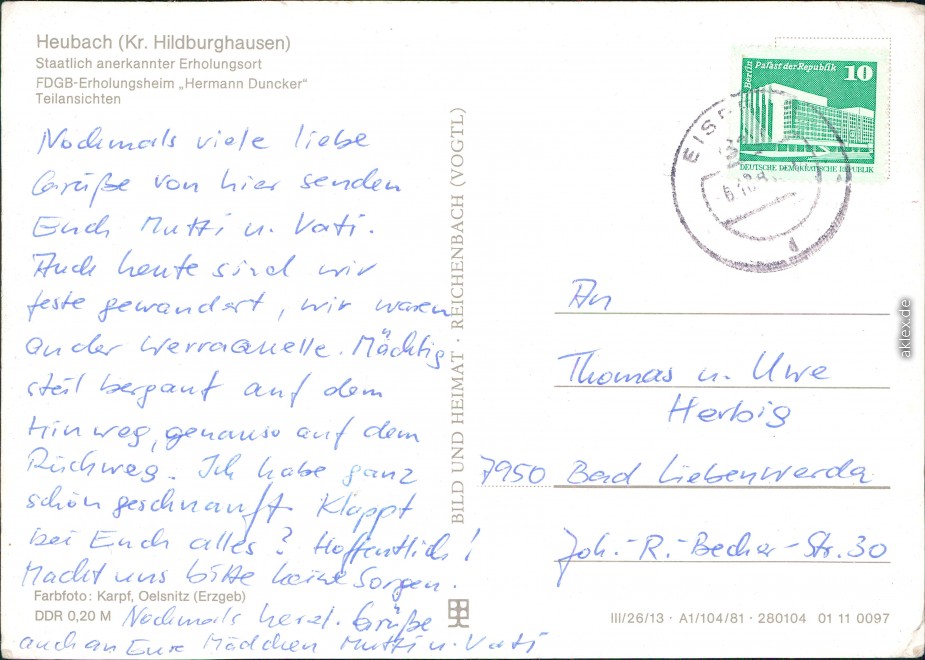 Heubach (Kr. Hildburghausen)
Staatlich anerkannter Erholungsort
FDGB-Erholungsheim „Hermann Duncker"
Teilansichten
Nochmals viele liebe
Grüße von hier senden
Euch Mutti u. Vati.
Auch heute sind wir
feste gewandert, wir waren
an der Werraquelle. Mächtig
steil bergauf auf dem
Hinweg, genauso auf dem
Rückweg. Ich habe ganz
schön geschnauft. Klappt
bei Euch alles? Hoffentlich!
Macht uns bitte keine Sorgen.
Farbfoto: Karpf, Oelsnitz (Erzgeb)
DDR 0,20 M
Nochmals herzl. Grüße
auch an Eure Mädchen Mutti u. Vati
BILD UND HEIMAT · REICHENBACH (VOGTL)
Berlin
Palast der Republik
10
DEUTSCHE DEMOKRATISCHE REPUBLIK
d
An
Thomas u. Uwe
Herbig
7950 Bad Liebenwerda
Joh.-R.-Becher-Str. 30
III/26/13 · A1/104/81 · 280104 01 11 0097
aklex.de